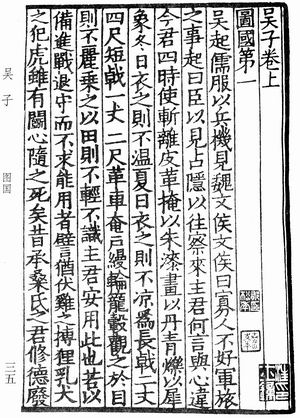 吳子卷上
圖國第一
吳起儒服以兵機見魏文侯文侯曰寡人不好軍旅
之事起曰臣以見占隱以往察來主君何言與心違
今君四時使斬離皮革掩以朱漆畫以丹青爍以犀
象冬日衣之則不溫夏日衣之則不凉為長戟二丈
四尺短戟一丈二尺革車奄戶縵輪籠轂觀之於目
則不麗乘之以田則不輕不識主君安用此也若以
備進戰退守而不求能用者譬猶伏雞之搏狸乳犬
之犯虎雖有鬬心隨之死矣昔承桑氏之君修德廢
吴子 图国
三五